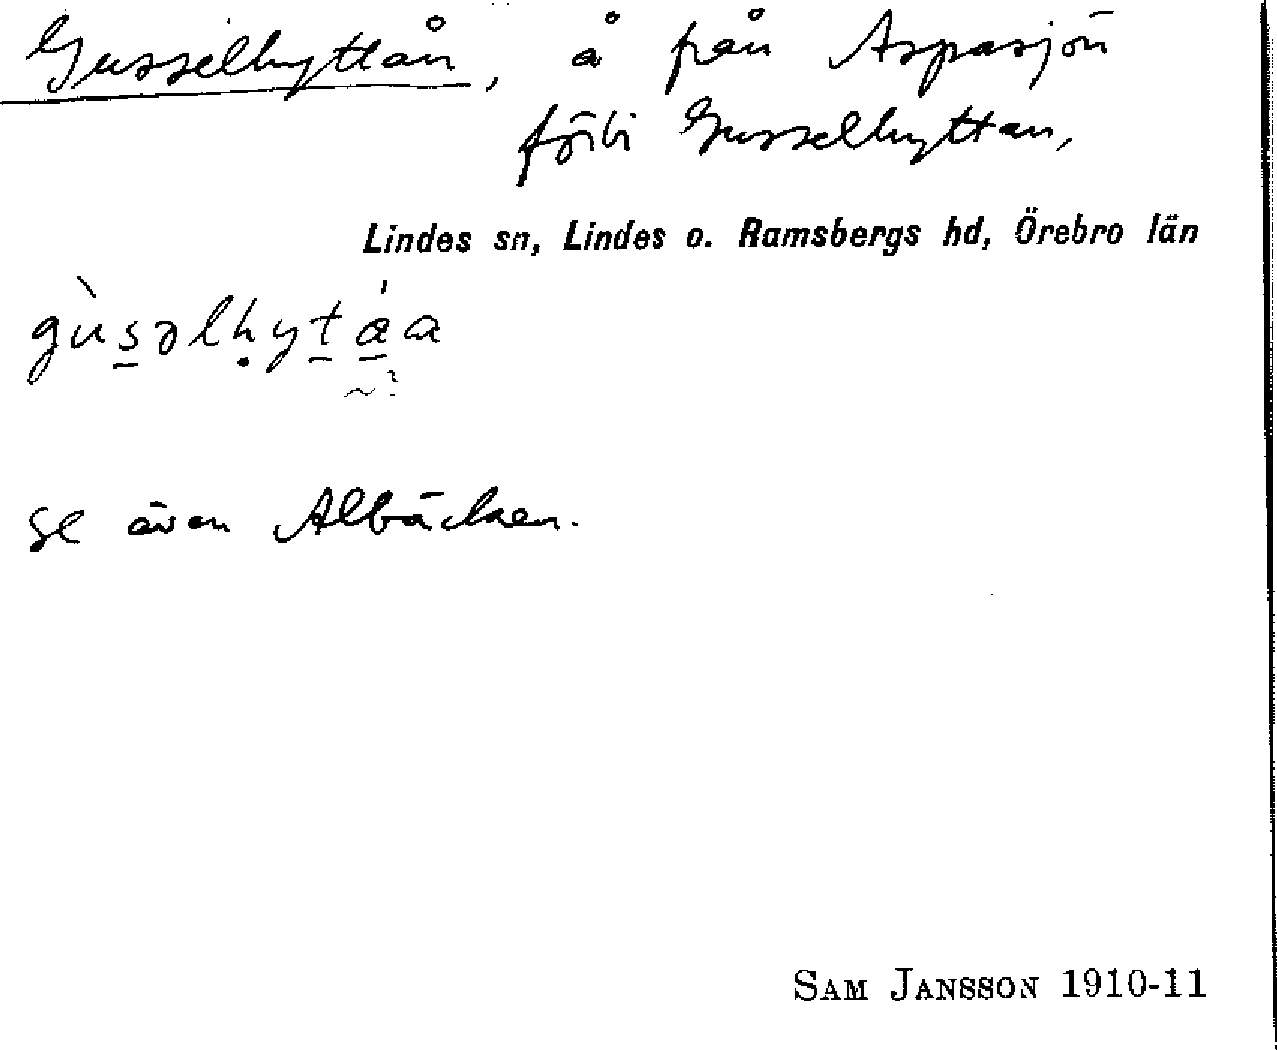 Gusselhyttån, å från Aspasjön
förbi Gusselhyttan,
Lindes sn, Lindes o. Ramsbergs hd, Örebro län
gùsəlḥytáa
se även Albäcken.
SAM JANSSON 1910-11